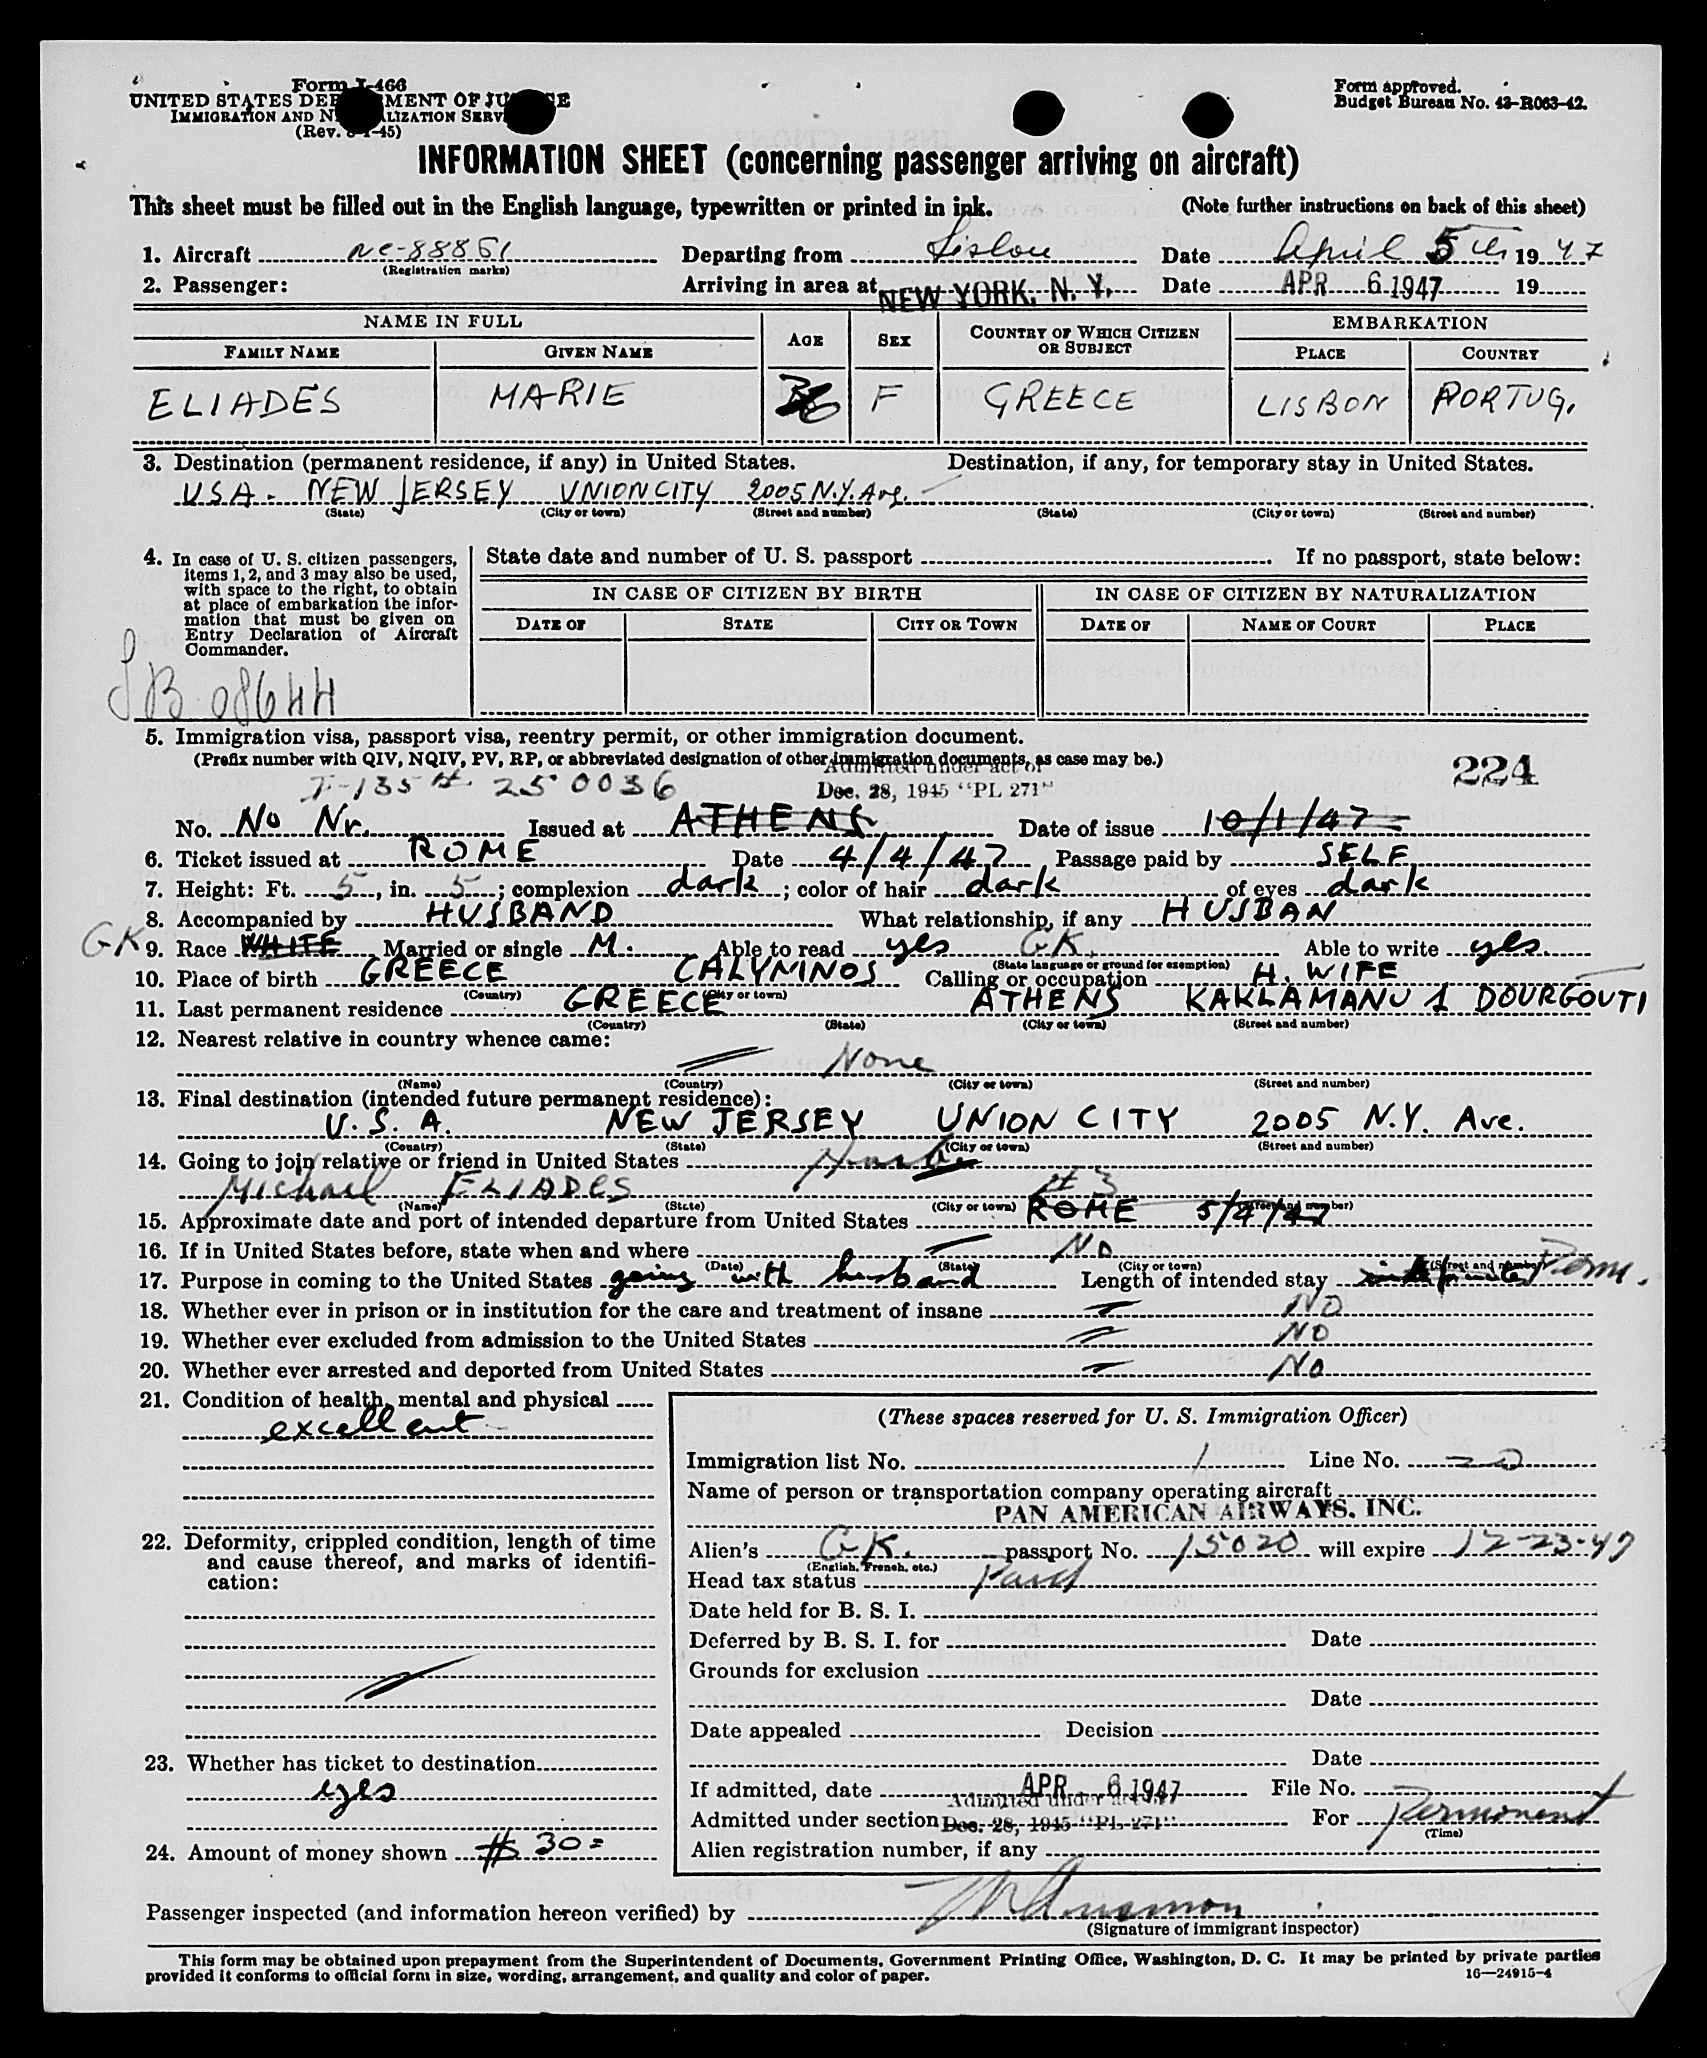 Form I-466
UNITED STATES DEPARTMENT OF JUSTICE
IMMIGRATION AND NATURALIZATION SERVICE
(Rev. -45)
Form approved.
Budget Bureau No. 43-R063-42.
INFORMATION SHEET (concerning passenger arriving on aircraft)
This sheet must be filled out in the English language, typewritten or printed in ink. (Note further instructions on back of this sheet)
1. Aircraft NC-88861 Departing from Lisbon Date April 5th 1947
(Registration marks)
2. Passenger: Arriving in area at NEW YORK, N. Y. Date APR 6 1947 19
NAME IN FULL AGE SEX COUNTRY OF WHICH CITIZEN OR SUBJECT EMBARKATION
FAMILY NAME GIVEN NAME PLACE COUNTRY
ELIADES MARIE F GREECE LISBON PORTUG.
3. Destination (permanent residence, if any) in United States. Destination, if any, for temporary stay in United States.
USA. NEW JERSEY UNION CITY 2005 N.Y. Ave.
(State) (City or town) (Street and number) (State) (City or town) (Street and number)
4. In case of U. S. citizen passengers, items 1, 2, and 3 may also be used, with space to the right, to obtain at place of embarkation the information that must be given on Entry Declaration of Aircraft Commander.
State date and number of U. S. passport If no passport, state below:
IN CASE OF CITIZEN BY BIRTH IN CASE OF CITIZEN BY NATURALIZATION
DATE OF STATE CITY OR TOWN DATE OF NAME OF COURT PLACE
08644
5. Immigration visa, passport visa, reentry permit, or other immigration document.
(Prefix number with QIV, NQIV, PV, RP, or abbreviated designation of other immigration documents, as case may be.)
224
Admitted under act of
Dec. 28, 1945 "PL 271"
I-135 # 250036
No. No Nr. Issued at ATHENS Date of issue 10/1/47
6. Ticket issued at ROME Date 4/4/47 Passage paid by SELF
7. Height: Ft. 5, in. 5; complexion dark; color of hair dark of eyes dark
8. Accompanied by HUSBAND What relationship, if any HUSBAN
GK 9. Race WHITE Married or single M. Able to read yes GK. Able to write yes.
(State language or ground for exemption)
10. Place of birth GREECE CALYMNOS Calling or occupation H. WIFE
(Country) (City or town)
11. Last permanent residence GREECE ATHENS KAKLAMANU 1 DOURGOUTI
(Country) (State) (City or town) (Street and number)
12. Nearest relative in country whence came:
None
(Name) (Country) (City or town) (Street and number)
13. Final destination (intended future permanent residence):
U.S.A. NEW JERSEY UNION CITY 2005 N.Y. Ave.
(Country) (State) (City or town) (Street and number)
14. Going to join relative or friend in United States
Michael ELIADES # 3
(Name) (State) (City or town) (Street and number)
15. Approximate date and port of intended departure from United States ROME 5/4/47
16. If in United States before, state when and where NO
(Date) (State) (City or town) (Street and number)
17. Purpose in coming to the United States going with husband Length of intended stay Perm.
18. Whether ever in prison or in institution for the care and treatment of insane NO
19. Whether ever excluded from admission to the United States NO
20. Whether ever arrested and deported from United States No
21. Condition of health, mental and physical
excellent
22. Deformity, crippled condition, length of time and cause thereof, and marks of identification:
23. Whether has ticket to destination
yes
24. Amount of money shown $ 30=
(These spaces reserved for U. S. Immigration Officer)
Immigration list No. 1 Line No. 20
Name of person or transportation company operating aircraft
PAN AMERICAN AIRWAYS, INC.
Alien's GK. passport No. 15020 will expire 12-23-47
(English, French, etc.)
Head tax status Paid
Date held for B. S. I.
Deferred by B. S. I. for Date
Grounds for exclusion
Date
Date appealed Decision
Date
If admitted, date APR 6 1947 File No.
Admitted under act of
Admitted under section Dec. 28, 1945 "PL 271" For Permanent
(Time)
Alien registration number, if any
Passenger inspected (and information hereon verified) by
(Signature of immigrant inspector)
This form may be obtained upon prepayment from the Superintendent of Documents, Government Printing Office, Washington, D. C. It may be printed by private parties
provided it conforms to official form in size, wording, arrangement, and quality and color of paper. 16—24915-4